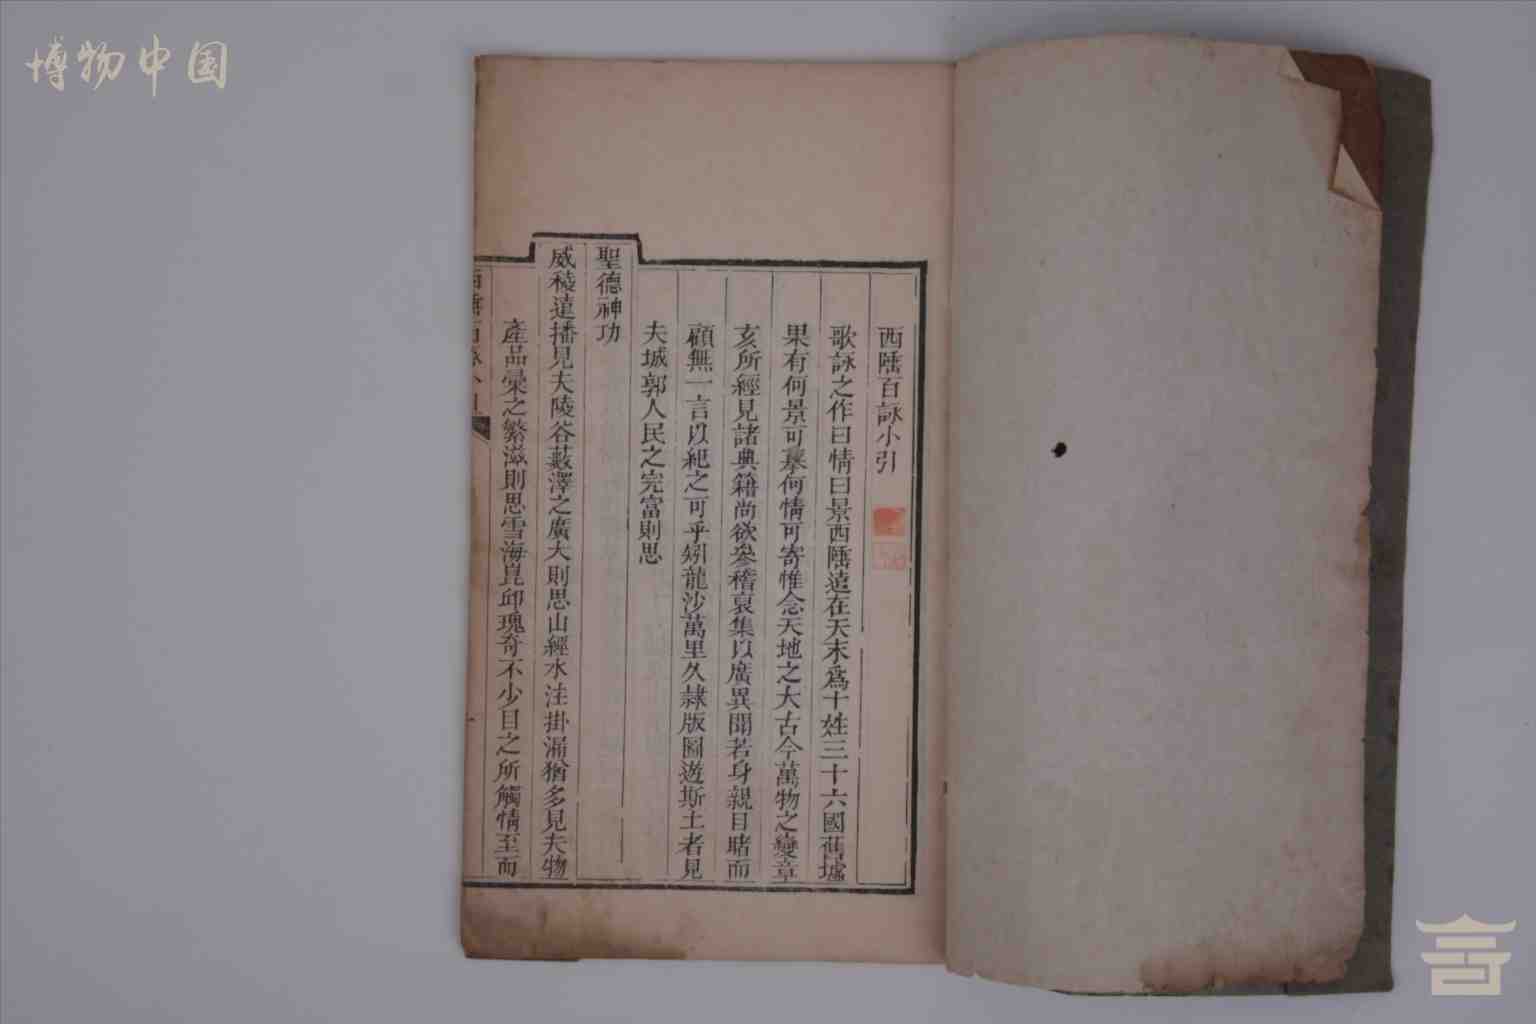 博物中国
西陲百詠小引
歌詠之作曰情曰景西陲遠在天末爲十姓三十六國舊墟
果有何景可摹何情可寄惟念天地之大古今萬物之變章
亥所經見諸典籍尚欲參稽裒集以廣異聞若身親目睹而
顧無一言以紀之可乎矧龍沙萬里久隸版圖遊斯土者見
夫城郭人民之完富則思
聖德神功
威稜遠播見夫陵谷藪澤之廣大則思山經水注掛漏猶多見夫物
產品彙之繁滋則思雪海崑邱瑰奇不少目之所觸情至而